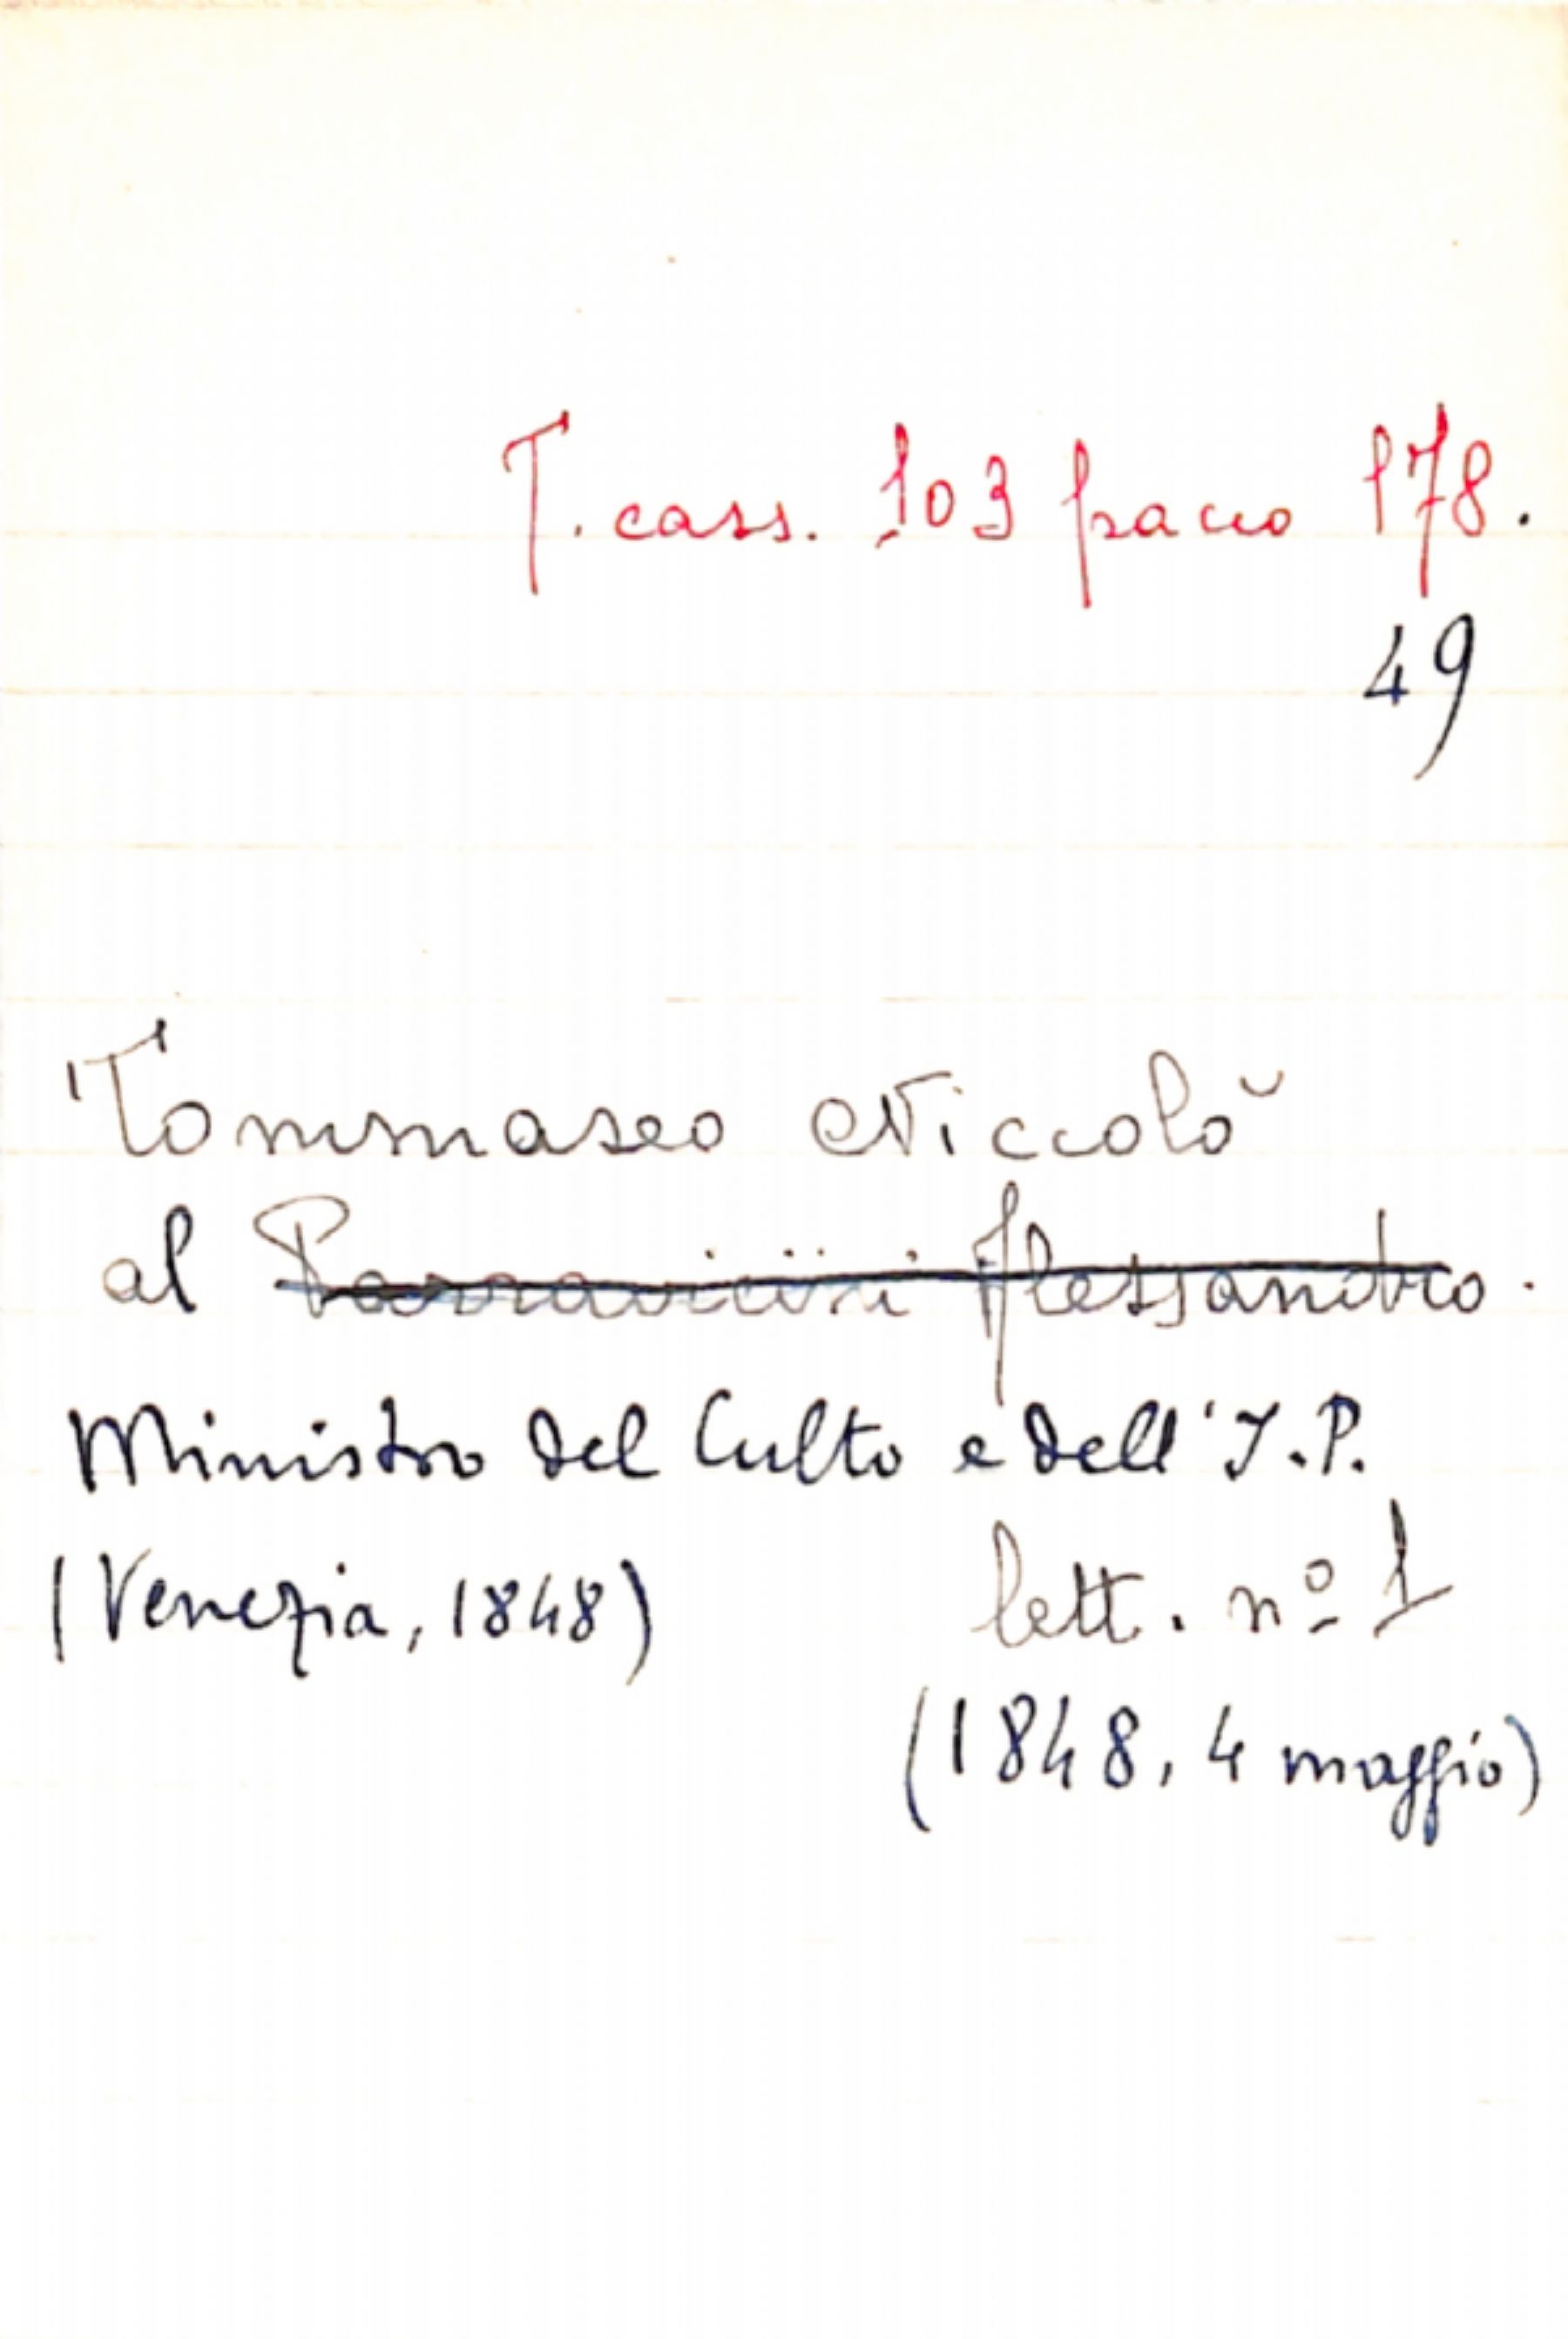 T. cass. 103 pacco 178.
49
Tommaseo Niccolò
al Parravicini Alessandro.
Ministro del Culto e dell'I.P.
(Venezia, 1848) lett. nº 1
(1848, 4 maggio)